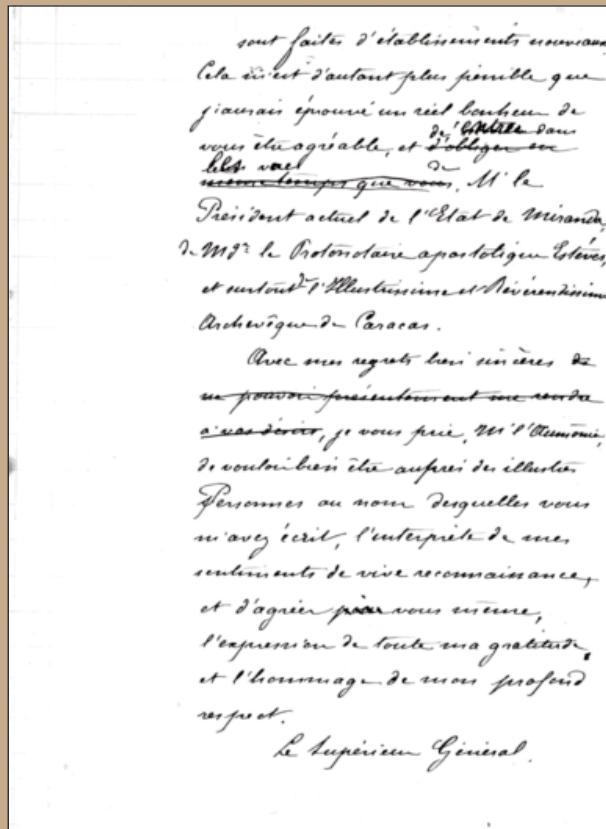 sont faites d'établissements nouveaux
Cela m'est d'autant plus pénible que
j'aurais éprouvé un réel bonheur de
vous être agréable, et d'obliger en de l'entrée dans
même temps que vous, les vues de M' le
Président actuel de l'Etat de Miranda,
de Mgr le Protonotaire apostolique Estéves,
et surtout de l'Illustrissime et Révérendissime
Archevêque de Caracas.
Avec mes regrets bien sincères de
ne pouvoir présentement me rendre
à vos désirs, je vous prie, M' l'Aumônier,
de vouloir bien être auprès des illustres
Personnes au nom desquelles vous
m'avez écrit, l'interprète de mes
sentiments de vive reconnaissance,
et d'agréer pour vous même,
l'expression de toute ma gratitude,
et l'hommage de mon profond
respect.
Le Supérieur Général.